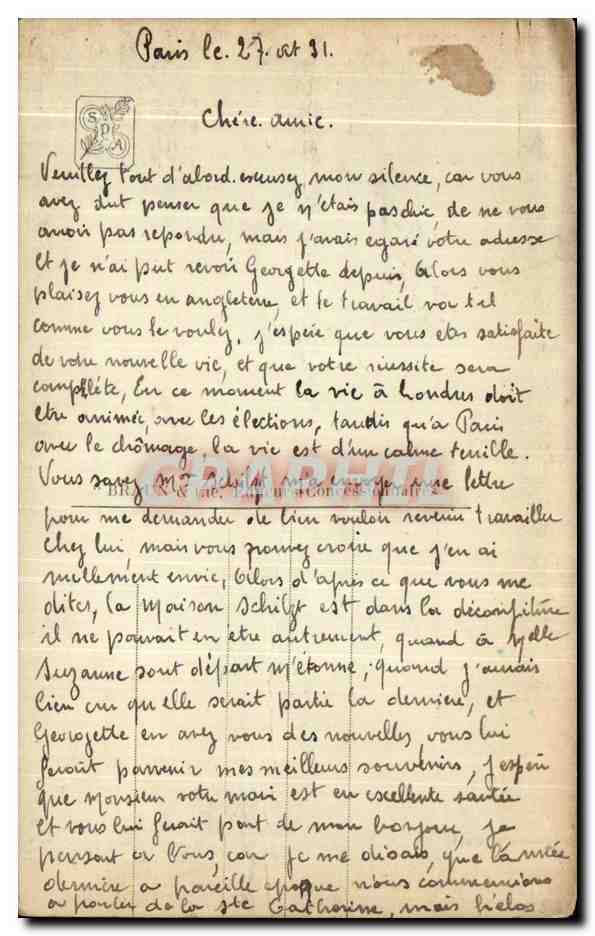 Paris le. 27. oct 31.
S P A
Chére. amie.
Veuillez tout d'abord. escusez, mon silence, car vous
avez dut penser que je n'étais pas chic, de ne vous
avoir pas repondu, mais j'avais egaré votre adresse
et je n'ai put revoir Georgette depuis, Alors vous
plaisez vous en angleterre, et le travail va t il
comme vous le voulez, j'espère que vous etes satisfaite
de votre nouvelle vie, et que votre réussite sera
complète, En ce moment la vie à Londres doit
etre animée, avec les élections, tandis qu'à Paris
avec le chômage, la vie est d'un calme terrible.
Vous savez Mr Schilzt m'a envoyer une lettre
BRAUN & Cie, Editeurs-Concessionnaires
pour me demander de bien vouloir revenir travailler
chez lui, mais vous pouvez croire que j'en ai
nullement envie, Alors d'après ce que vous me
dites, la Maison Schilzt est dans la déconfiture
il ne pouvait en etre autrement, quand à Melle
Suzanne sont départ m'étonne, quand j'aurais
bien cru qu'elle serait partie la dernière, et
Georgette en avez vous des nouvelles vous lui
feroit parvenir mes meilleurs souvenirs, j'espère
que Monsieur votre mari est en excellente santée
et vous lui ferait part de mon bonjour, je
pensait à Vous, car je me disais, que l'année
dernière à pareille époque nous commencions
à parler de la Ste Catherine, mais hélas